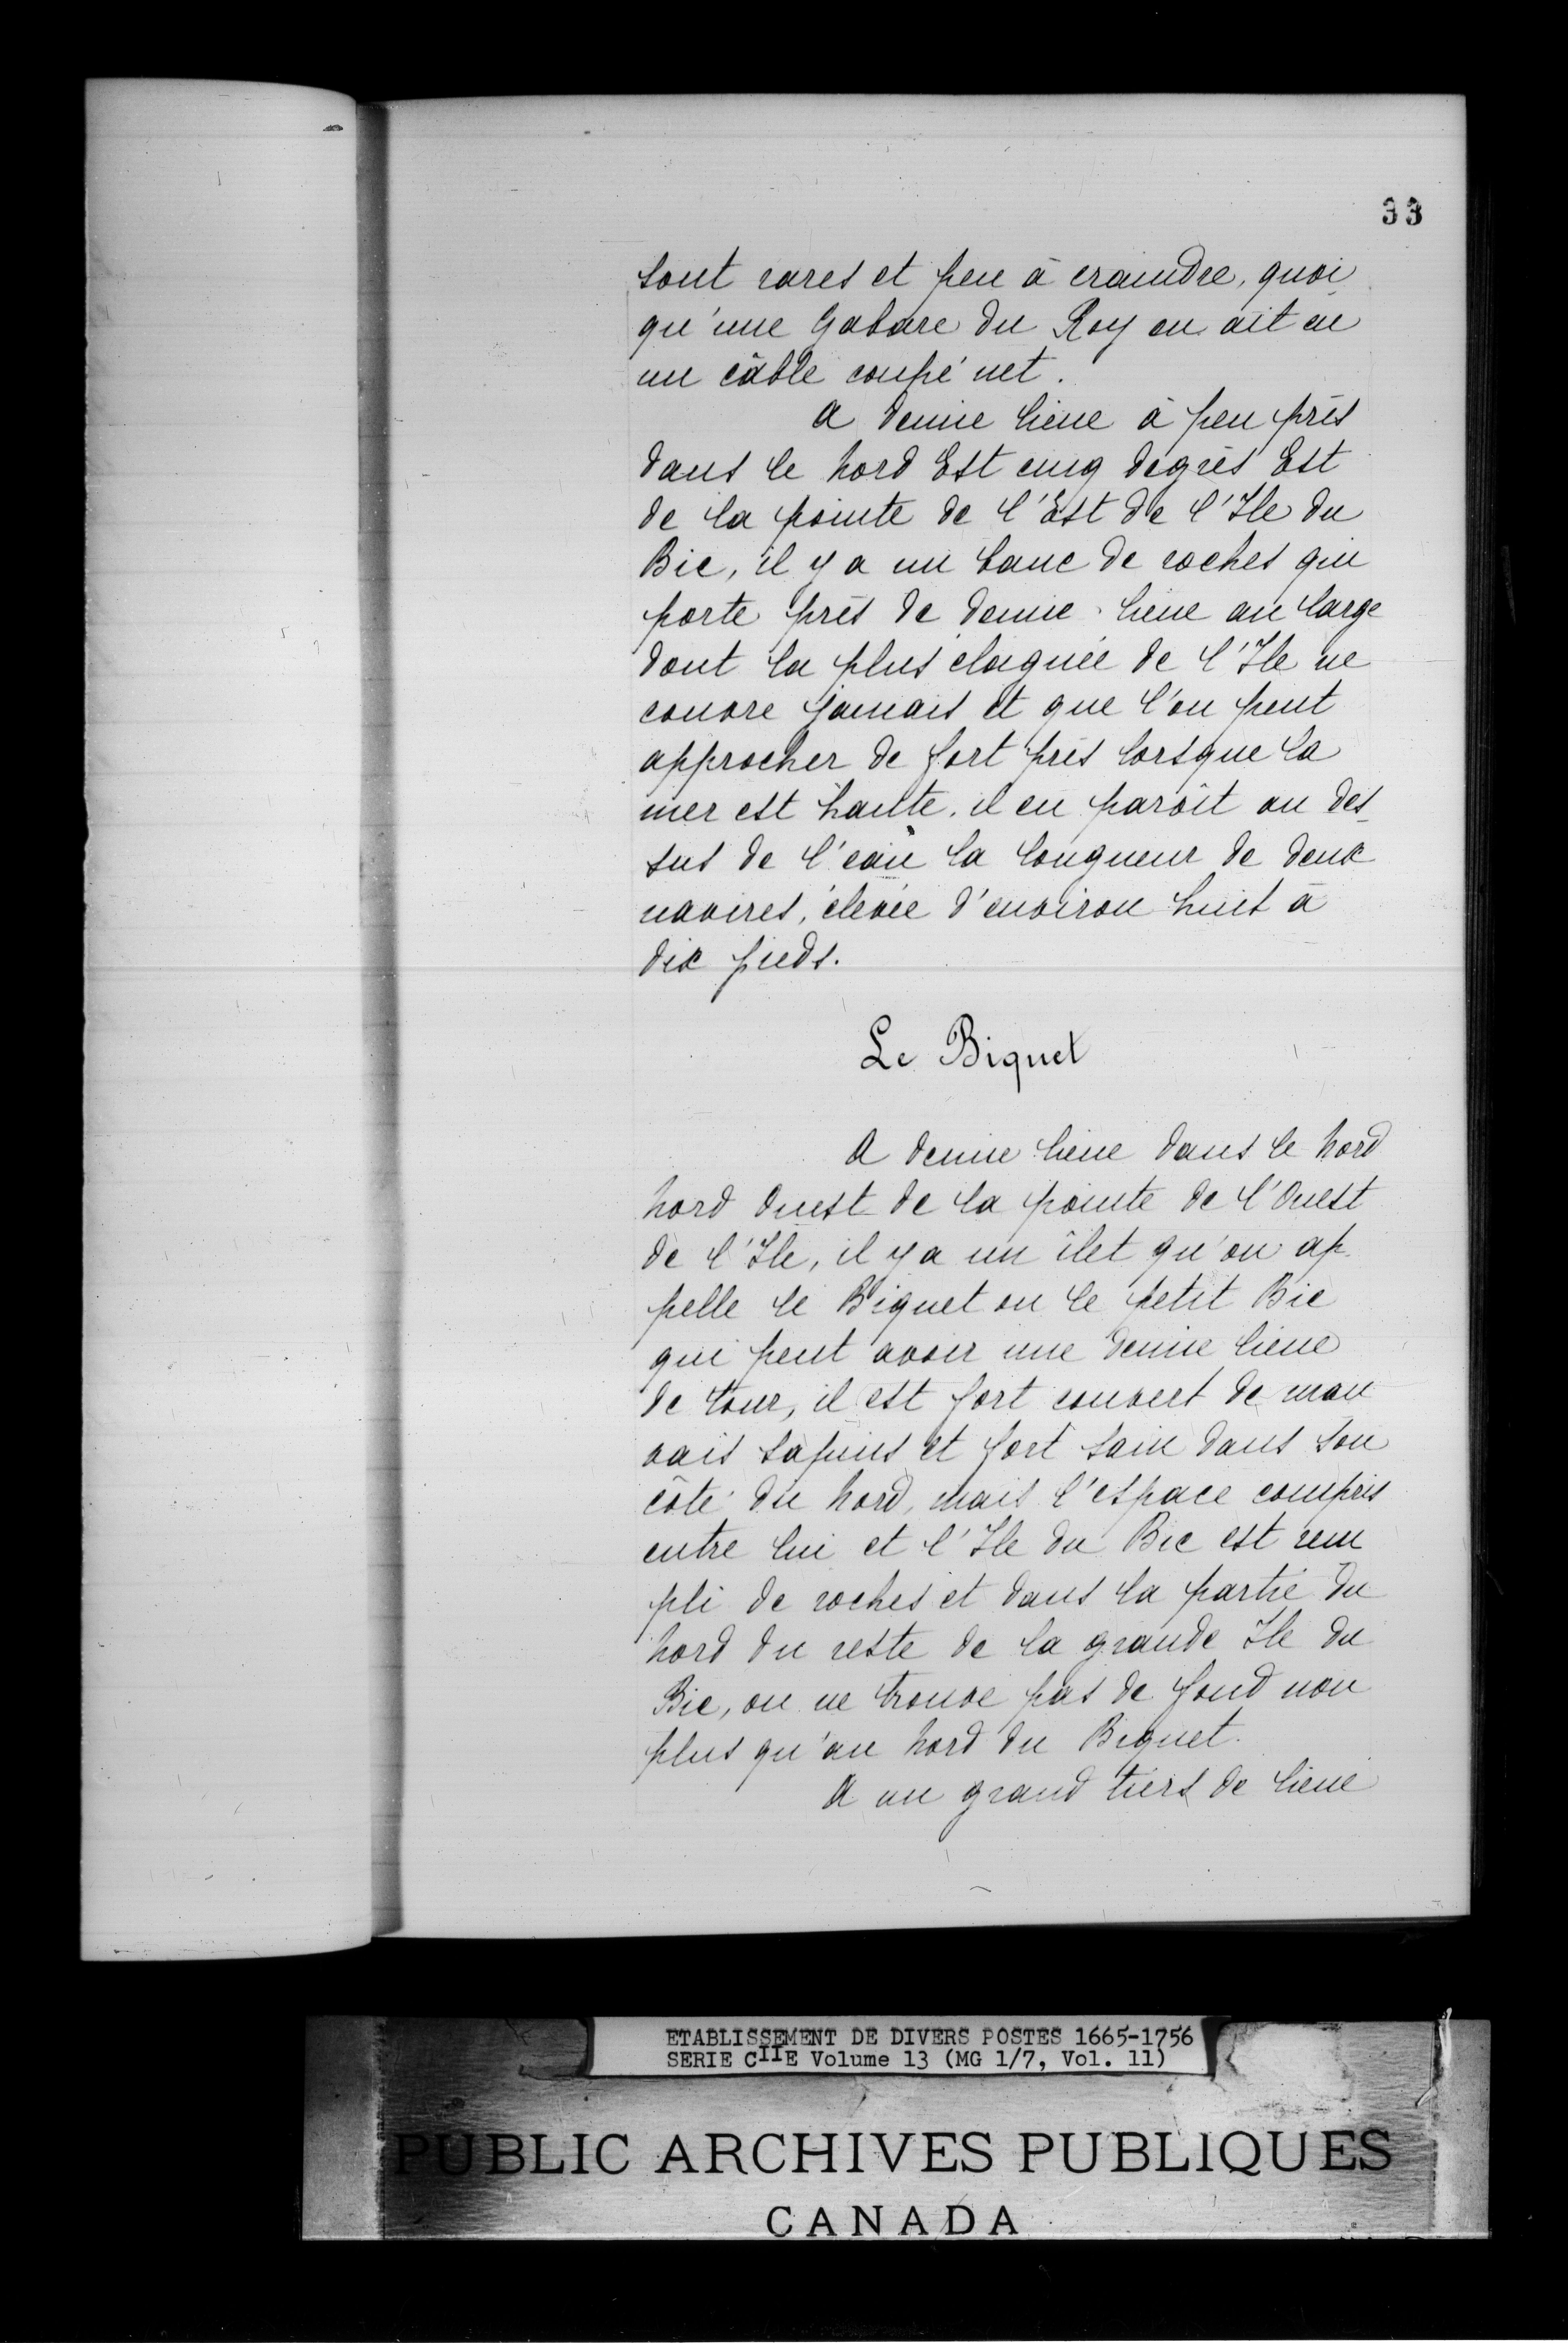 33
sont rares et peu à craindre, quoi
qu'une Gabare du Roy en ait eu
un câble coupé net.
A demie lieue à peu près
dans le Nord Est cinq degrés Est
de la pointe de l'Est de l'Ile du
Bic, il y a un banc de roches qui
porte près de demie-lieue au large
dont la plus éloignée de l'Ile ne
couvre jamais et que l'on peut
approcher de fort près lorsque la
mer est haute. il en paroît au des-
sus de l'eau la longueur de deux
navires, élevée d'environ huit à
dix pieds.
Le Biquet
A demie lieue dans le Nord
Nord Ouest de la pointe de l'Ouest
de l'Ile, il y a un îlet qu'on ap-
pelle le Biquet ou le petit Bic
qui peut avoir une demie lieue
de tour, il est fort couvert de mau
vais sapins et fort sain dans son
côté du Nord, mais l'espace compris
entre lui et l'Ile du Bic est rem
pli de roches et dans la partie du
Nord du reste de la grande Ile du
Bic, on ne trouve pas de fond non
plus qu'au Nord du Biquet.
A un grand tiers de lieue
ETABLISSEMENT DE DIVERS POSTES 1665-1756
SERIE CIIE Volume 13 (MG 1/7, Vol. 11)
PUBLIC ARCHIVES PUBLIQUES
CANADA